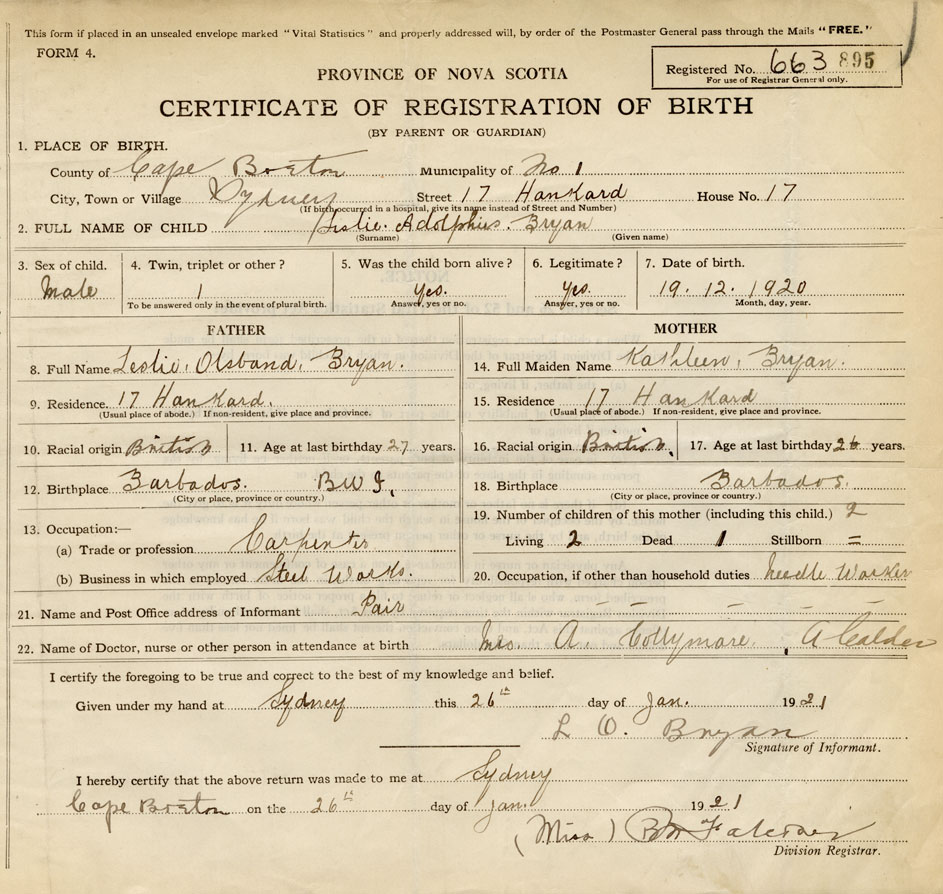 This form if placed in an unsealed envelope marked "Vital Statistics" and properly addressed will, by order of the Postmaster General pass through the Mails "FREE."
FORM 4.
Registered No. 663 895
For use of Registrar General only.
PROVINCE OF NOVA SCOTIA
CERTIFICATE OF REGISTRATION OF BIRTH
(BY PARENT OR GUARDIAN)
1. PLACE OF BIRTH.
County of Cape Breton Municipality of No 1
City, Town or Village Sydney Street 17 Hankard House No. 17
(If birth occurred in a hospital, give its name instead of Street and Number)
2. FULL NAME OF CHILD Leslie. Adolphus. Bryan
(Surname) (Given name)
3. Sex of child. 4. Twin, triplet or other? 5. Was the child born alive? 6. Legitimate? 7. Date of birth.
Male 1 yes. yes. 19. 12. 1920
To be answered only in the event of plural birth. Answer, yes or no. Answer, yes or no. Month, day, year.
FATHER
8. Full Name Leslie, Olsband, Bryan.
9. Residence. 17 Hankard.
(Usual place of abode.) If non-resident, give place and province.
10. Racial origin British 11. Age at last birthday 27 years.
12. Birthplace Barbados. BWI,
(City or place, province or country.)
13. Occupation:—
(a) Trade or profession Carpenter
(b) Business in which employed Steel Works.
MOTHER
14. Full Maiden Name Kathleen, Bryan.
15. Residence 17 Hankard
(Usual place of abode.) If non-resident, give place and province.
16. Racial origin British, 17. Age at last birthday 26 years.
18. Birthplace Barbados.
(City or place, province or country.)
19. Number of children of this mother (including this child.) 2
Living 2 Dead 1 Stillborn =
20. Occupation, if other than household duties needle Worker
21. Name and Post Office address of Informant Pair — — — — —
22. Name of Doctor, nurse or other person in attendance at birth Mrs. A. Collymore. A Calder
I certify the foregoing to be true and correct to the best of my knowledge and belief.
Given under my hand at Sydney this 26th day of Jan. 1921
L O. Bryan
Signature of Informant.
I hereby certify that the above return was made to me at Sydney
Cape Breton on the 26th day of Jan. 1921
(Miss)
Division Registrar.